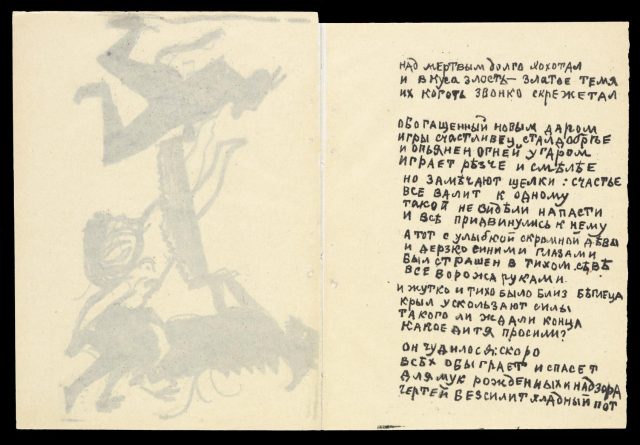 над мертвым долго хохотал
и вкуса злость — златое темя
их коготь звонко скрежетал
обогащенный новым даром
игры счастливец стал добрѣе
и опьянен огней угаром
играет рѣзче и смѣлѣе
но замѣчают щелки: счастье
все валит к одному
такой не видѣли напасти
и всѣ придвинулись к нему
а тот с улыбкой скромной дѣвы
и дерзко синими глазами
был страшен в тихом
все ворожа руками.
и жутко и тихо было близ бѣглеца
крыл ускользают силы
такого ли ждали конца
какое дитя просили?
он чудилося: скоро
всѣх обыграет и спасет
для мук рожденных и надзора
чертей безсилит хладный пот